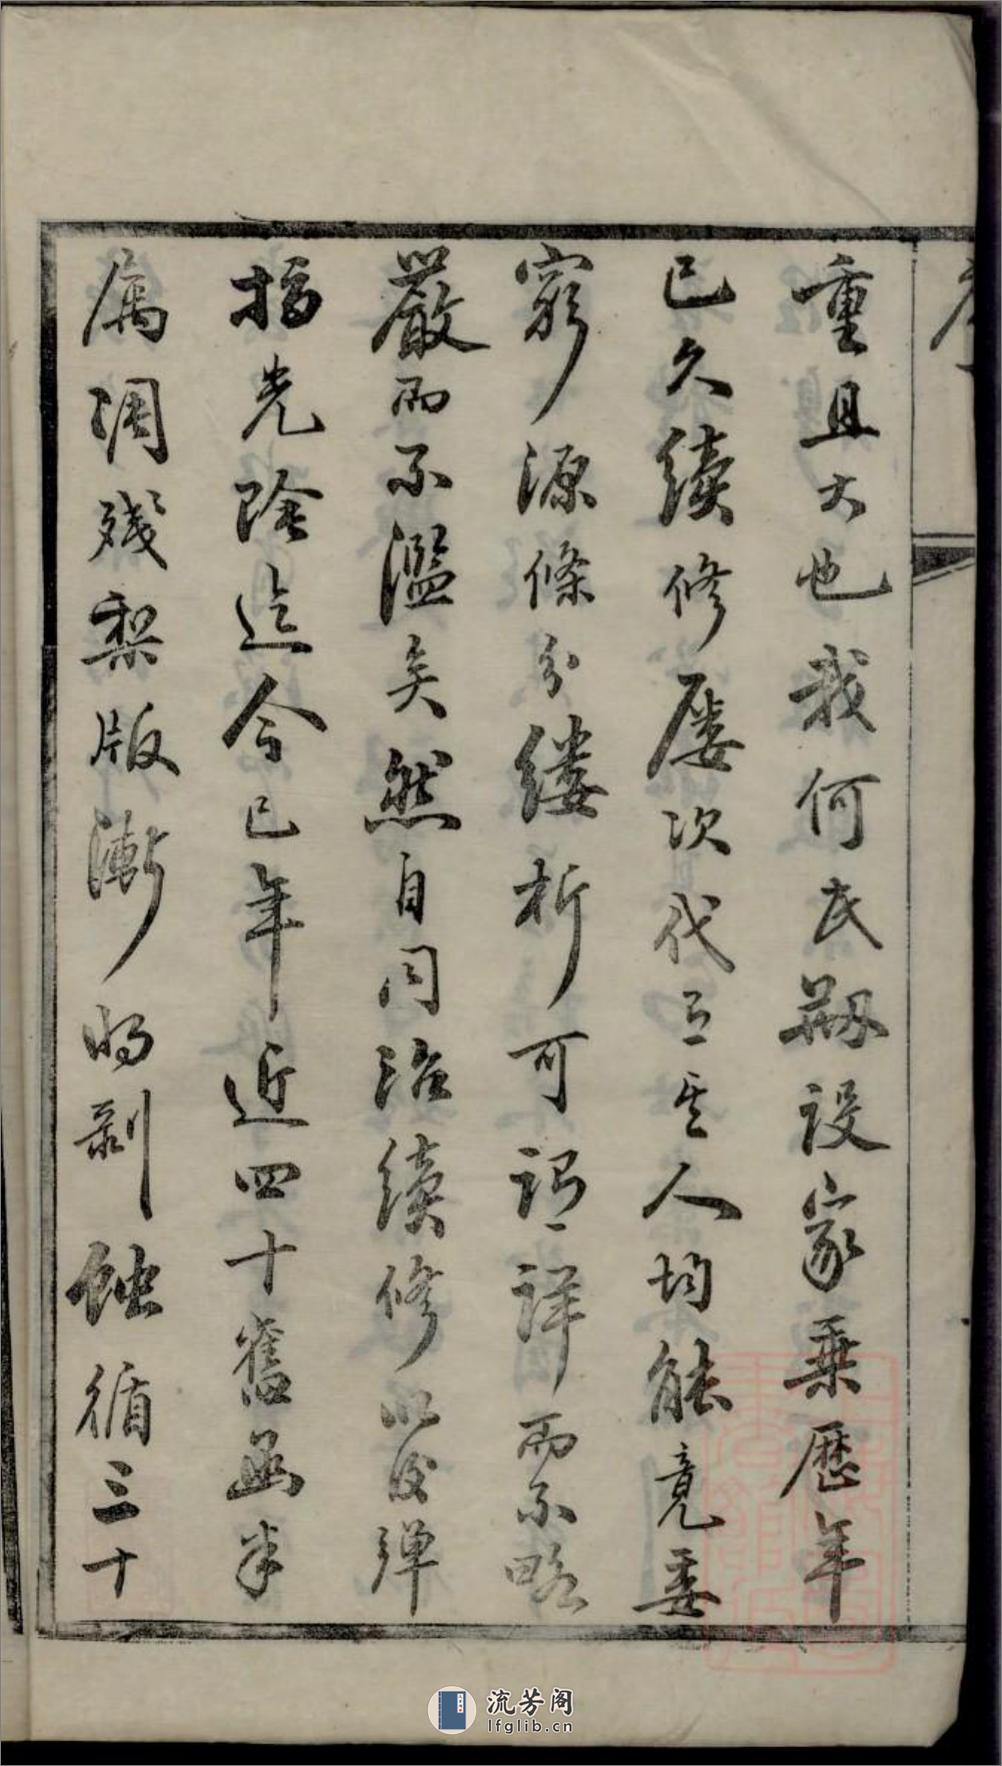 重且大也我何氏剏設家乗歷年
已久續修屡次代有其人均能竟委
窮源條分縷析可謂詳而不略
嚴而不濫矣然自同治續修以後弹
指光陰迄今已年近四十舊函半
属凋殘梨版漸将剥蝕循三十
序
流芳阁
lfglib.cn